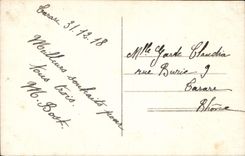 Tarare 31.12.18
Meilleurs souhaits pour
Vous trois.
M. Bost
Mlle Garde Claudia
rue Burie 9
Tarare
Rhône